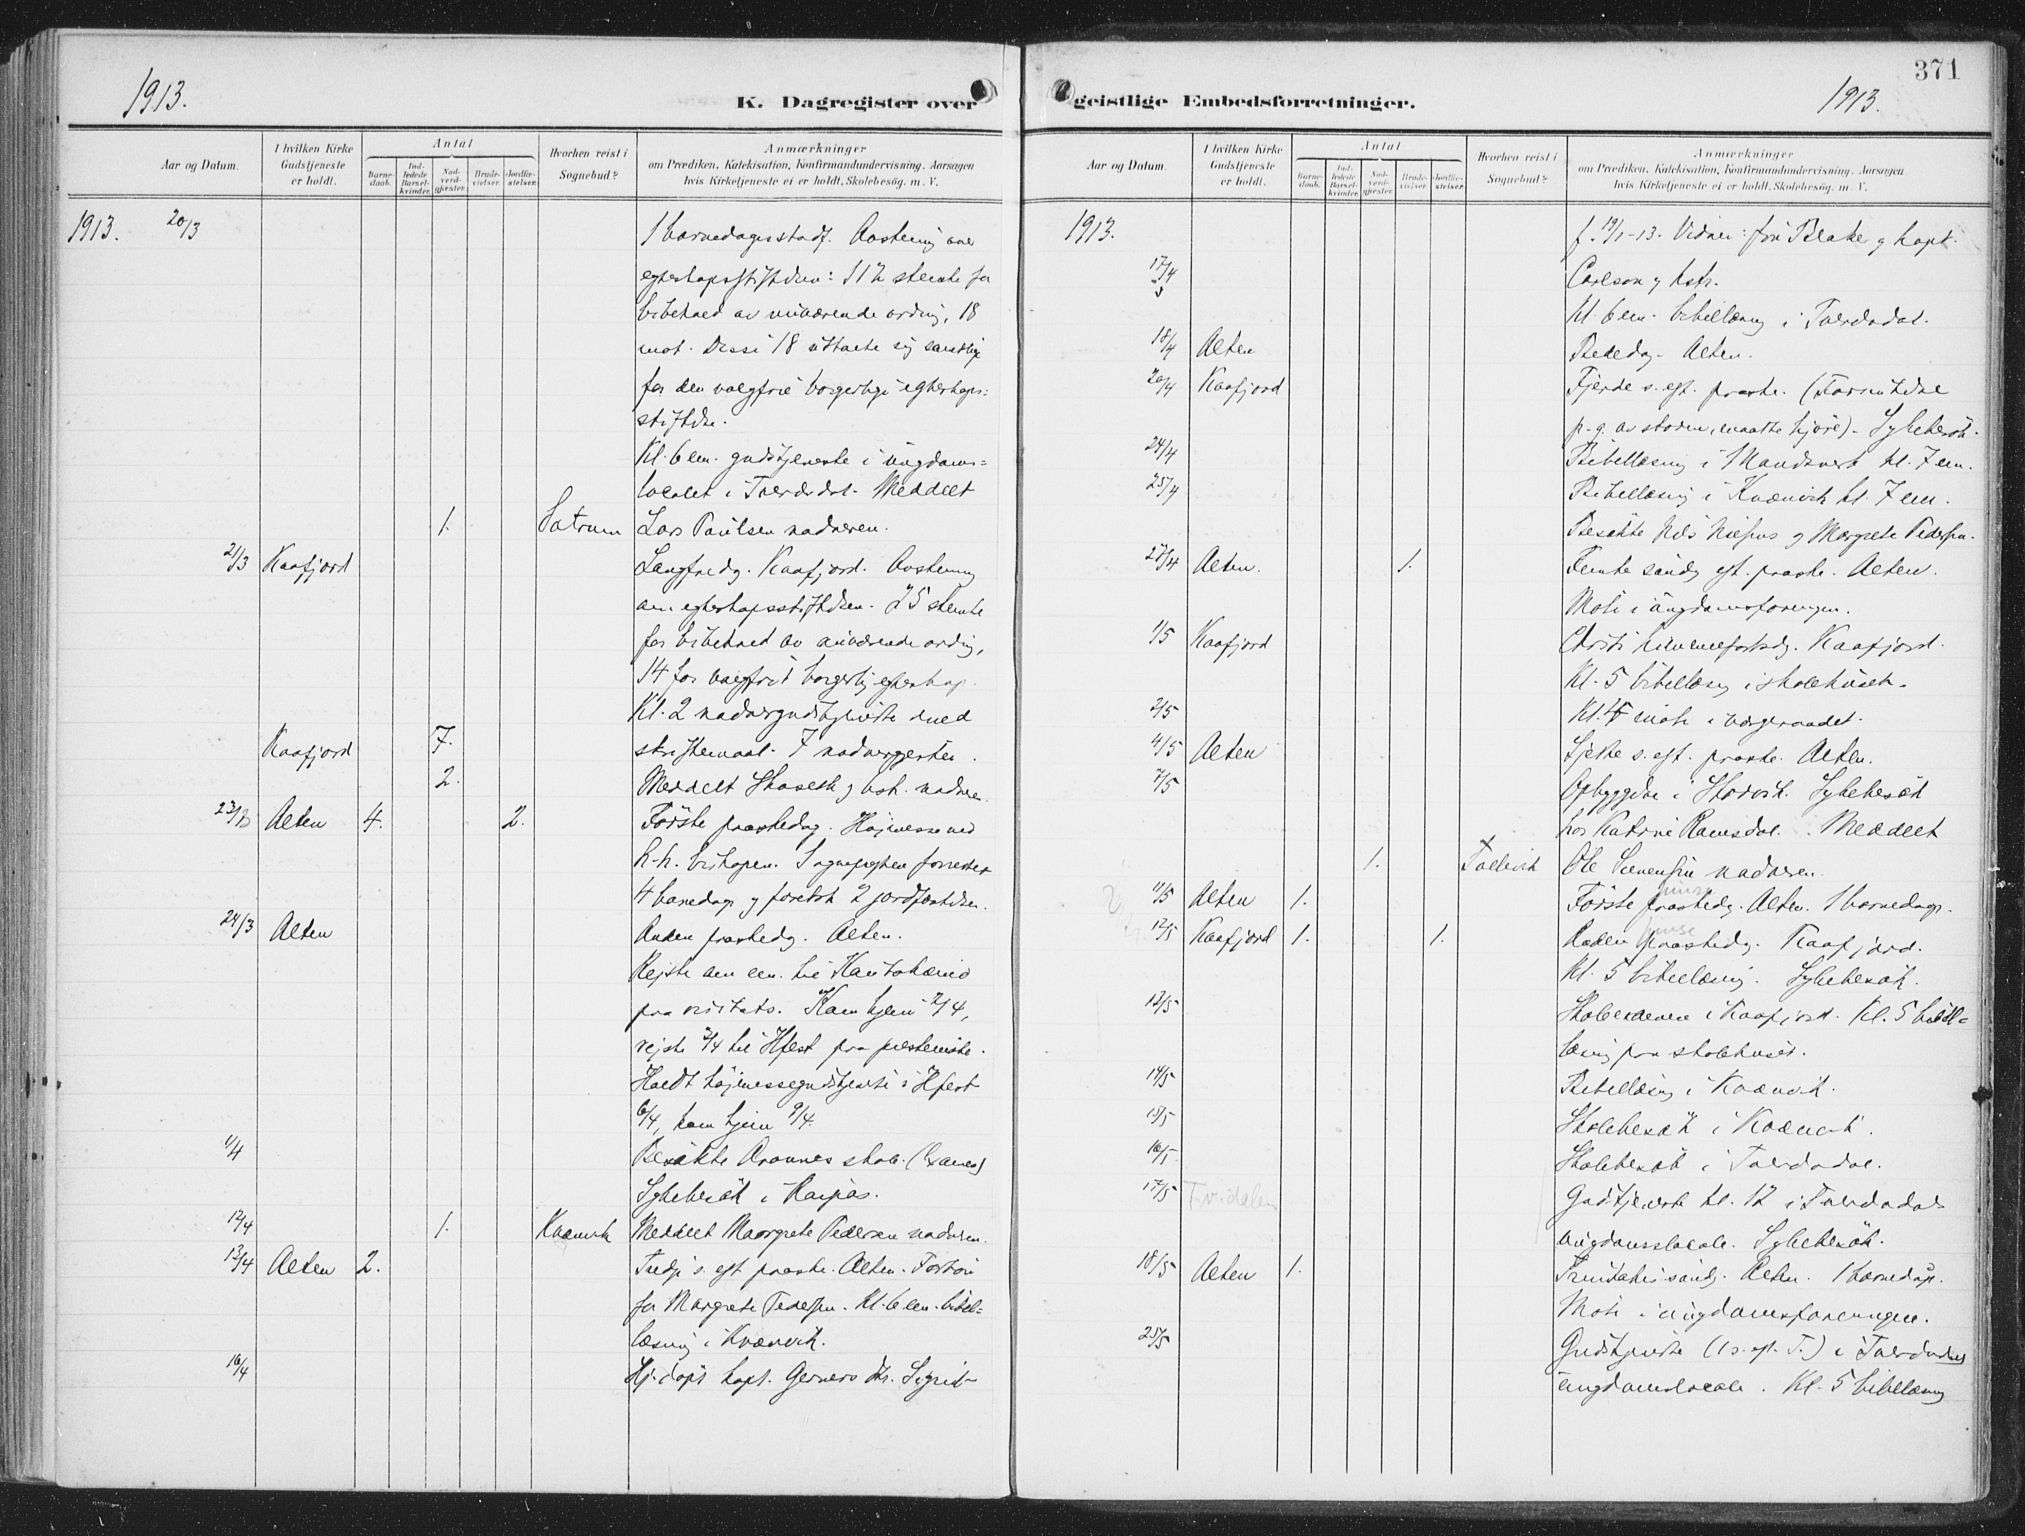 1913.
K. Dagregister over
Aar og Datum.
I hvilken Kirke Gudstjeneste er holdt.
Antal
Barne-daab.
Ind-ledede Barsel-kvinder.
Nad-verd-gjester.
Brude-vielser.
Jordfæ-stelser.
Hvorhen reist i Sognebud?
Anmærkninger
om Prædiken, Katekisation, Konfirmandundervisning. Aarsagen
hvis Kirketjeneste ei er holdt. Skolebesög. m. V.
1913. 20/3 1 barnedaa i stadf. Avstemning over
egteskapsstiftelsen: 112 stemte for
bibehold av nuværende ordning, 18
mot. Disse 18 uttalte sig samtlige
for den valgfrie borgerlige egteskaps=
stiftelse.
Kl. 6 em. gudstjeneste i ungdoms=
localet i Tverdalen. Meddelt
1. Lars Paulsen nadveren.
21/3 Kaafjord Langfredag. Kaafjord. Avstemning
om egteskapsstiftelsen. 25 stemte
for bibehold av nuværende ordning,
14 for valgfrit borgerlig egteskap.
Kl. 2 nadvergudstjeneste med
Kaafjord 7. skriftemaal. 7 nadvergjester.
2. Meddelt Skoseth og hst. nadveren.
23/3 Alten 4. 2. Første paaskedag. Højmesse ved
h.h. biskopen. Sognepresten forrettet
4 barnedaap og foretok 2 jordfæstelser.
24/3 Alten Anden paaskedag. Alten.
Rejste om em. til Kautokeino
paa visitats. Kom hjem 2/4,
rejste 3/4 til Hfest paa prestemøte.
Holdt højmessegudstjeneste i Hfest
6/4, kom hjem 9/4.
1/4 Besøkte Aronnes skole. (Examen)
Sykebesøk i Raipas.
12/4 1. Kvænvik Meddelt Maorgrete Pedersen nadveren.
13/4 Alten 2. Tredje s. eft. paaske. Alten. Forbøn
for Margrete Pedersen. Kl. 6 em. bibel=
læsning i Kvænvik.
16/4 Hj. døpt kapt. Gerners dtr. Sigrid
371
geistlige Embedsforretninger.
1913.
Aar og Datum.
I hvilken Kirke Gudstjeneste er holdt.
Antal
Barne-daab.
Ind-ledede Barsel-kvinder.
Nad-verd-gjester.
Brude-vielser.
Jordfæ-stelser.
Hvorhen reist i Sognebud?
Anmærkninger
om Prædiken, Katekisation, Konfirmandundervisning. Aarsagen
hvis Kirketjeneste ei er holdt. Skolebesög. m. V.
1913. f. 19/1-13. Vidner: fru og kapt.
17/4 Carlson og hstr.
Kl. 6 em. bibellæsning i Tverdalen.
18/4 Alten Bededag. Alten.
20/4 Kaafjord Fjerde s. eft. paaske. (Forsinkelse
p.g. av storm, maatte kjøre). Sykebesøk.
24/4 Bibellæsning i Mandsverk kl. 7 em.
25/4 Bibellæsning i Kvænvik kl. 7 em.
Besøkte Nils og Margrete Pedersen.
27/4 Alten. 1. Femte søndag eft. paaske. Alten.
Møte i ungdomsforeningen.
1/5 Kaafjord Christi himmelfartsdag. Kaafjord.
Kl. 5 bibellæsning i skolehuset.
2/5 Kl. 4 møte i vergeraadet.
4/5 Alten Sjette s. eft. paaske. Alten.
7/5 Opbyggelse i Storvik. Sykebesøk
hos Katrine Ramsdal. Meddelt
1. Talvik Ole nadveren.
11/5 Alten 1. Første paaskedag. Alten. 1 barnedaap.
pinse
12/5 Kaafjord 1. 1. Anden paaskedag. Kaafjord.
pinse
Kl. 5 bibellæsning. Sykebesøk.
13/5 Skoleexamen i Kaafjord. Kl. 5 bibel=
læsning paa skolehuset.
14/5 Bibellæsning i Kvænvik.
15/5 Skolebesøk i Kvænvik.
16/5 Skolebesøk i Tverdalen.
17/5 Tv.dalen Gudstjeneste kl. 12 i Tverdalens
ungdomslocale. Sykebesøk.
18/5 Alten 1. Trinitatis søndag. Alten. 1 barnedaap.
Møte i ungdomsforeningen.
25/5 Gudstjeneste (1 s. eft. T.) i Tverdalens
ungdomslocale. Kl. 5 bibellæsning